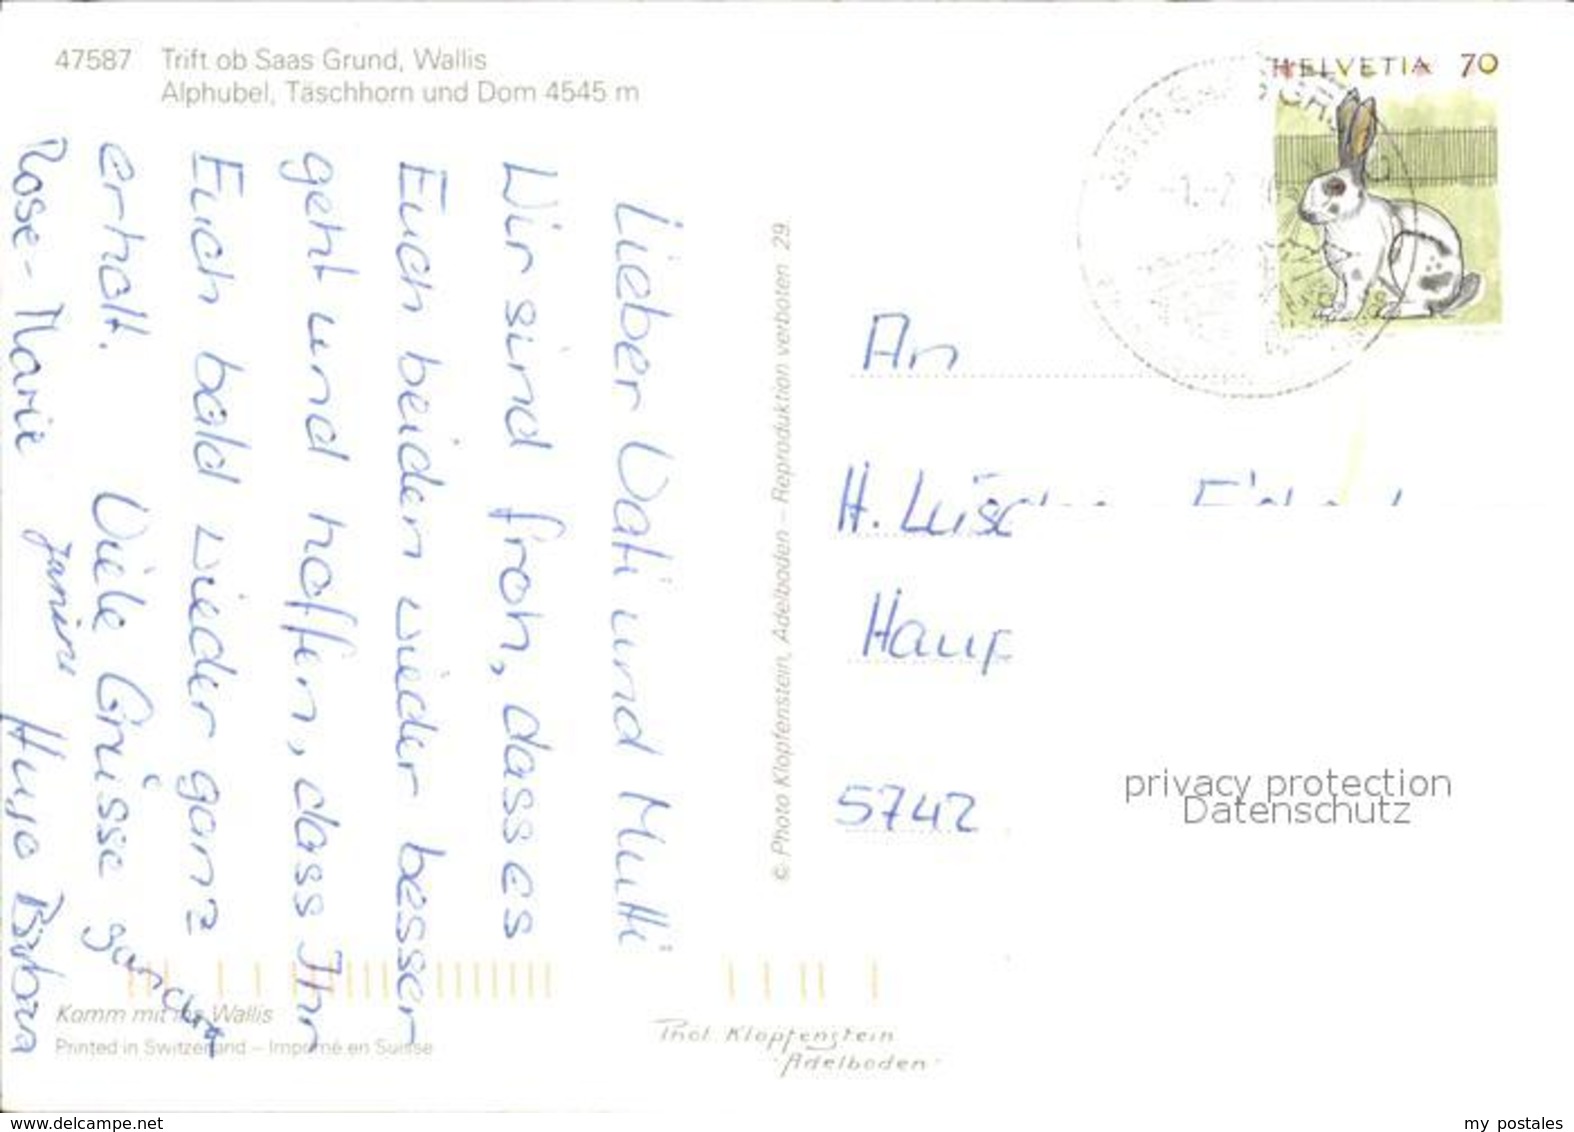 47587 Trift ob Saas Grund, Wallis
Alphubel, Täschhorn und Dom 4545 m
HELVETIA 70
Lieber Vati und Mutti
Wir sind froh, dass es
Euch beiden wieder besser
geht und hoffen, dass Ihr
Euch bald wieder ganz
erholt. Viele Grüsse
Rose-Marie Janine Hugo Barbara
© Photo Klopfenstein, Adelboden – Reproduktion verboten 29
An
H. Lüsc
Haup
5742
privacy protection
Datenschutz
Komm mit ins Wallis
Printed in Switzerland – Imprimé en Suisse
Phot. Klopfenstein
Adelboden
www.delcampe.net
my postales